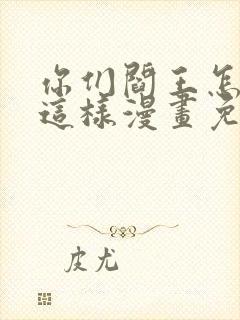 你们閻王怎
這樣漫畫免
皮尤